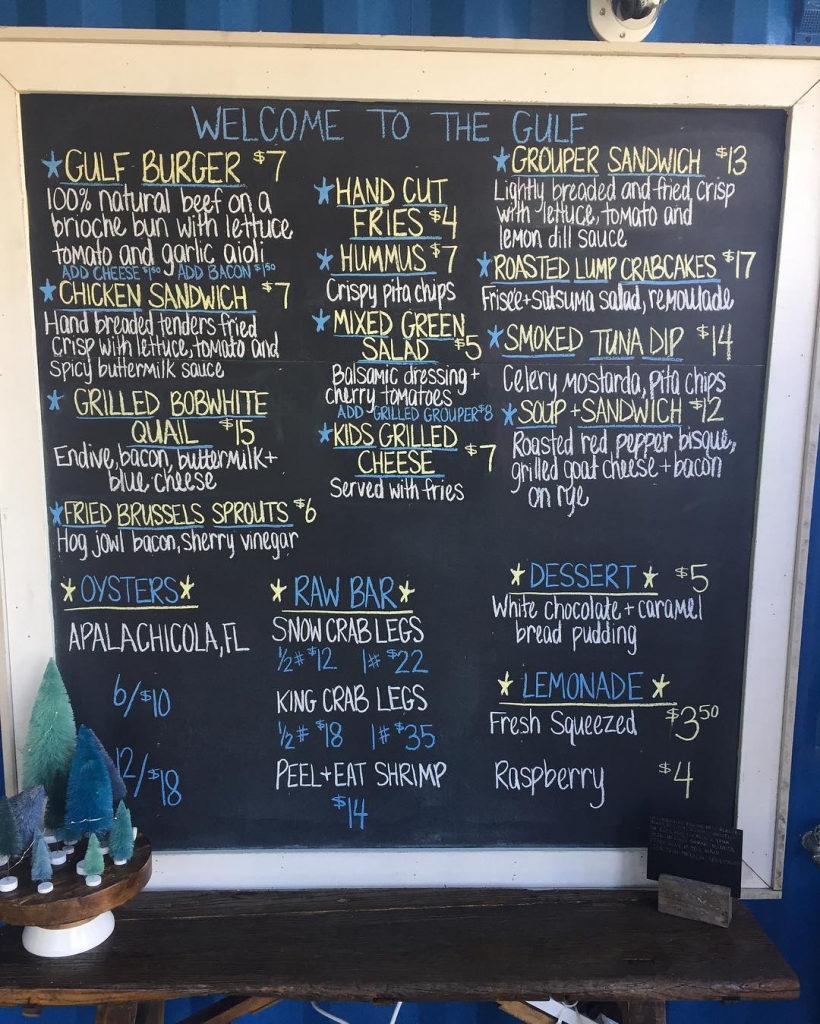 WELCOME TO THE GULF
GULF BURGER $7
100% natural beef on a
brioche bun with lettuce
tomato and garlic aioli
ADD CHEESE $1.50 ADD BACON $1.50
CHICKEN SANDWICH $7
Hand breaded tenders fried
crisp with lettuce, tomato and
spicy buttermilk sauce
GRILLED BOBWHITE
QUAIL $15
Endive, bacon, buttermilk+
blue cheese
FRIED BRUSSELS SPROUTS $6
Hog jowl bacon, sherry vinegar
HAND CUT
FRIES $4
HUMMUS $7
Crispy pita chips
MIXED GREEN
SALAD $5
Balsamic dressing +
cherry tomatoes
ADD GRILLED GROUPER $8
KIDS GRILLED
CHEESE $7
Served with fries
GROUPER SANDWICH $13
Lightly breaded and fried crisp
with lettuce, tomato and
lemon dill sauce
ROASTED LUMP CRABCAKES $17
Frisée+satsuma salad, remoulade
SMOKED TUNA DIP $14
Celery mostarda, pita chips
SOUP + SANDWICH $12
Roasted red pepper bisque,
grilled goat cheese + bacon
on rye
OYSTERS
APALACHICOLA, FL
6/$10
12/$18
RAW BAR
SNOW CRAB LEGS
1/2# $12 1# $22
KING CRAB LEGS
1/2# $18 1# $35
PEEL+EAT SHRIMP
$14
DESSERT $5
White chocolate + caramel
bread pudding
LEMONADE
Fresh Squeezed $3.50
Raspberry $4